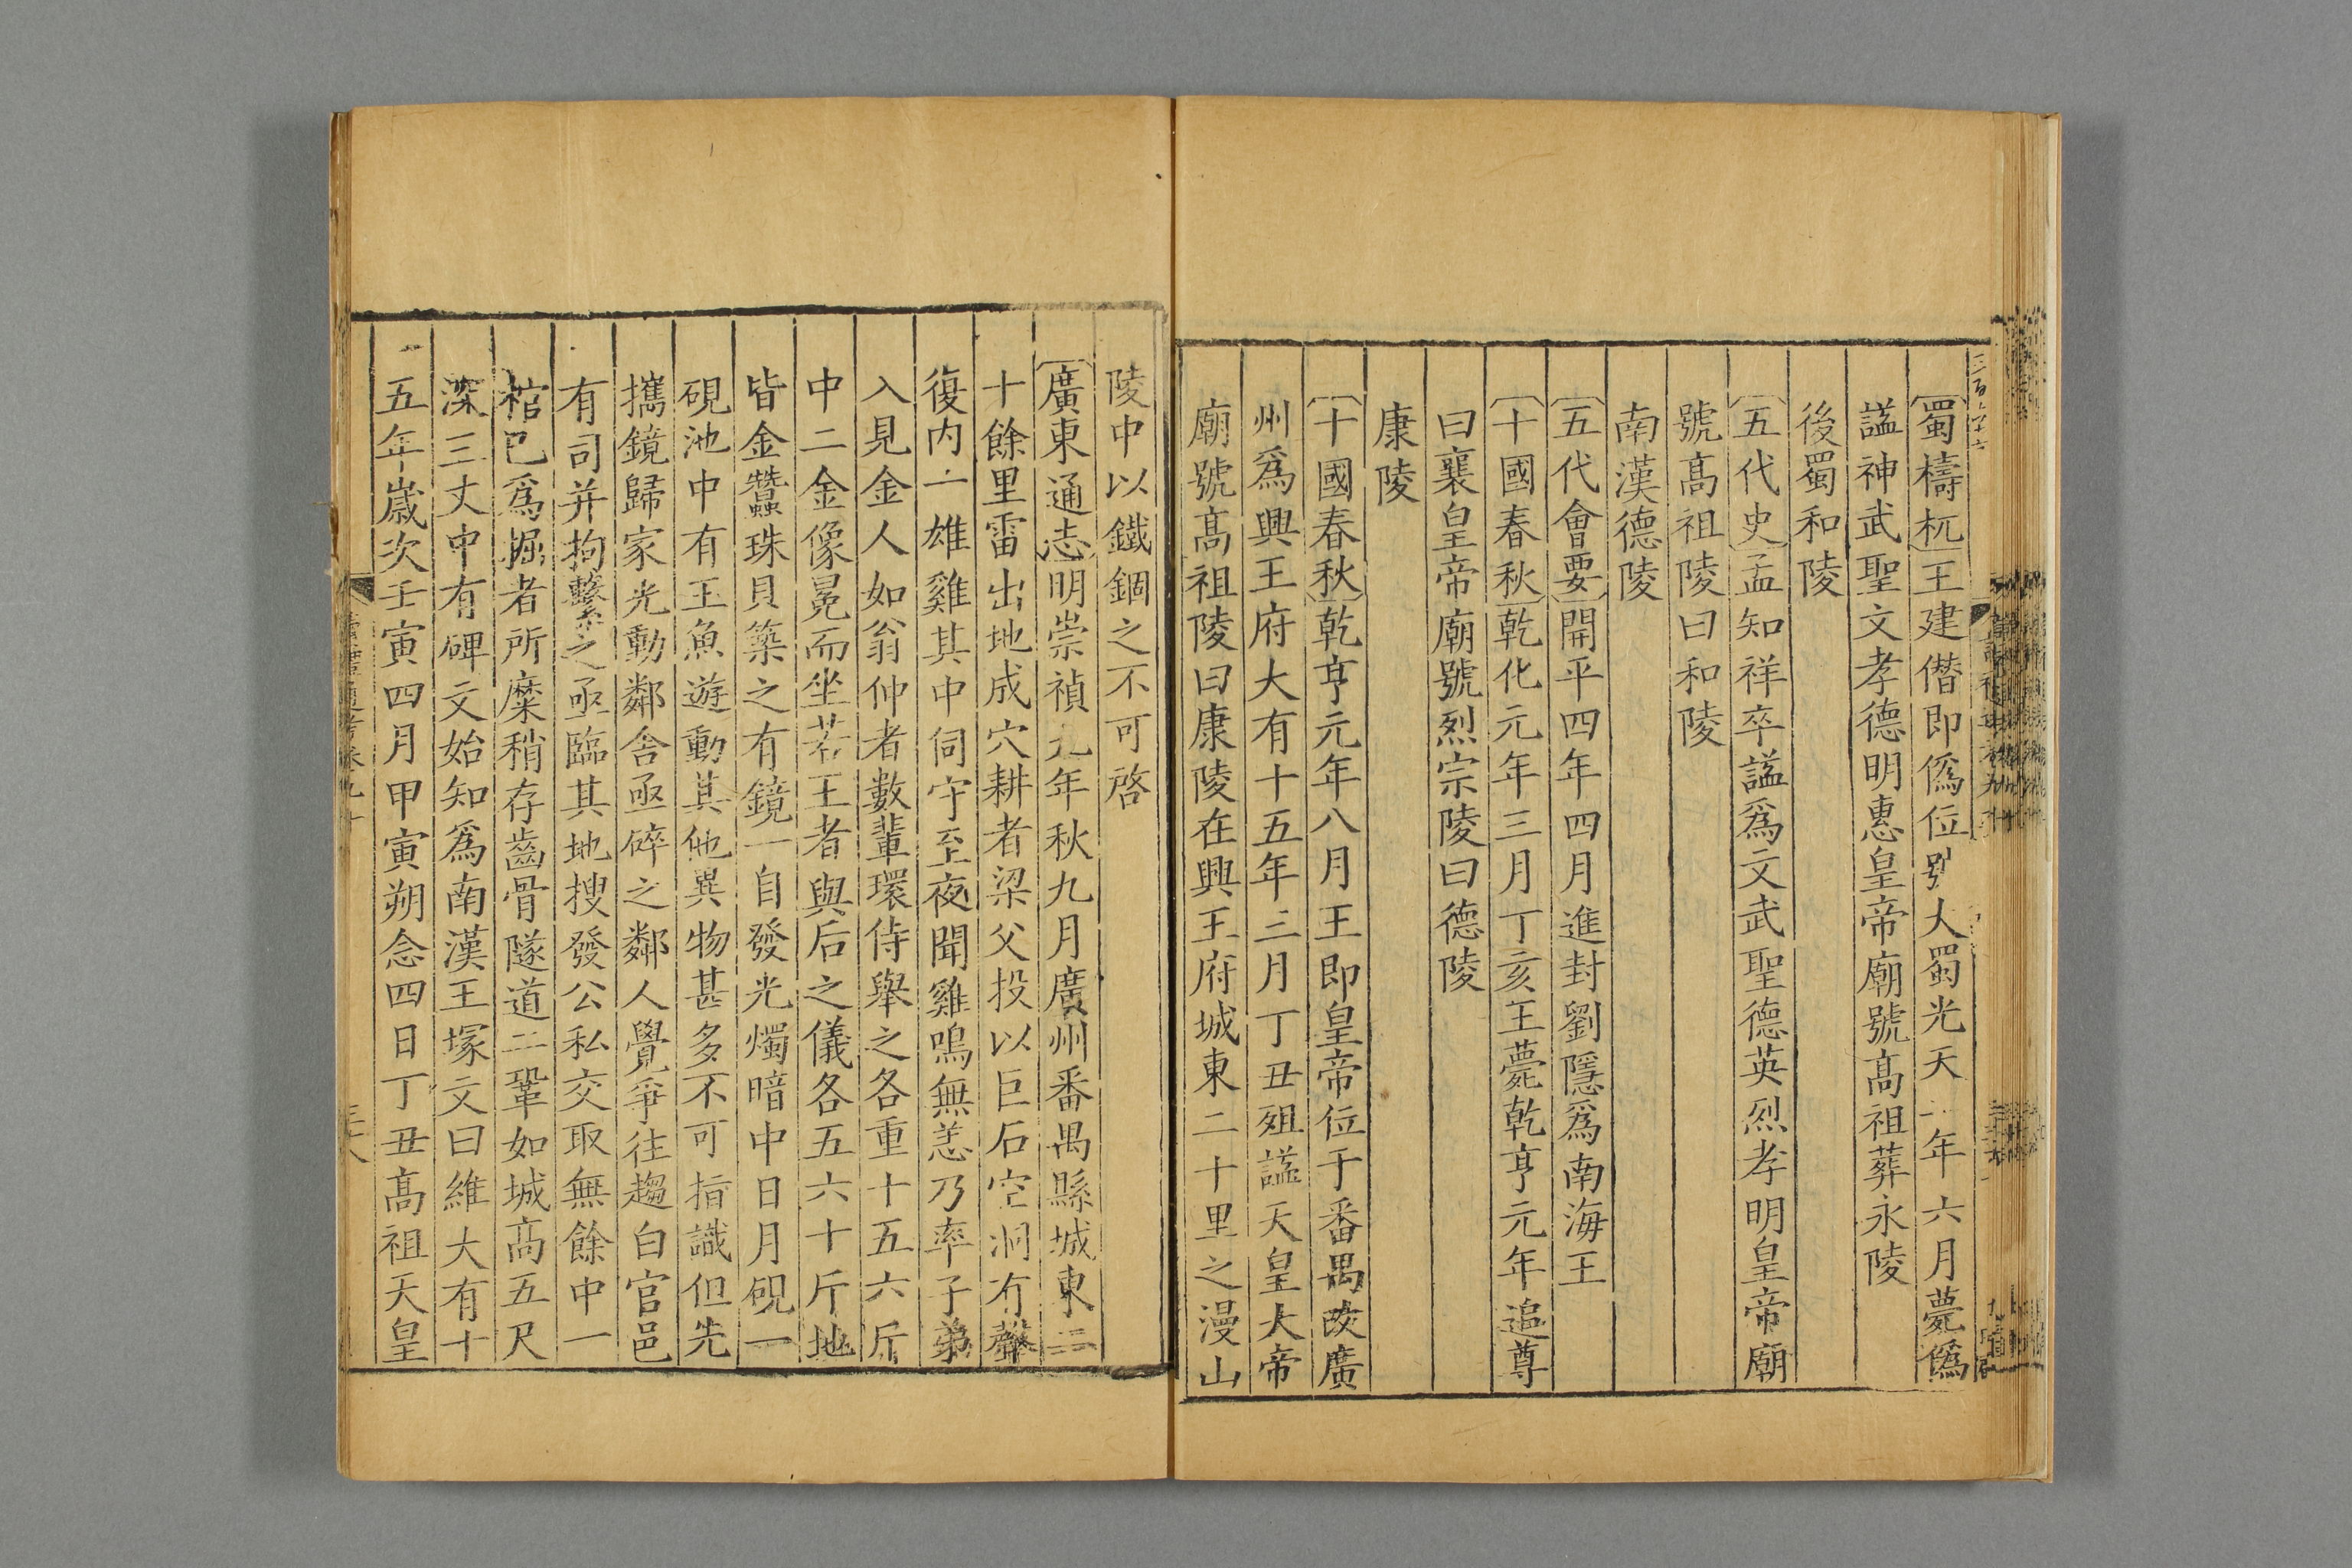 蜀檮杌王建僭即僞位號大蜀光天元年六月薨僞
謚神武聖文孝德明惠皇帝廟號髙祖葬永陵
後蜀和陵
五代史孟知祥卒謚爲文武聖德英烈孝明皇帝廟
號髙祖陵曰和陵
南漢德陵
五代會要開平四年四月進封劉隱爲南海王
十國春秋乾化元年三月丁亥王薨乾亨元年追尊
曰襄皇帝廟號烈宗陵曰德陵
康陵
十國春秋乾亨元年八月王即皇帝位于番禺改廣
州爲興王府大有十五年三月丁丑殂謚天皇大帝
廟號髙祖陵曰康陵在興王府城東二十里之漫山
陵中以鐵錮之不可啓
廣東通志明崇禎九年秋九月廣州番禺縣城東二
十餘里雷出地成穴耕者梁父投以巨石空洞有聲
復内一雄雞其中伺守至夜聞雞鳴無恙乃率子弟
入見金人如翁仲者數輩環侍舉之各重十五六斤
中二金像冕而坐若王者與后之儀各五六十斤地
皆金蠶珠貝築之有鏡一自發光燭暗中日月硯一
硯池中有玉魚遊動其他異物甚多不可指識但先
攜鏡歸家光動鄰舍亟碎之鄰人覺爭往趨白官邑
有司并拘繫之亟臨其地搜發公私交取無餘中一
棺已爲掘者所糜稍存齒骨隧道二鞏如城髙五尺
深三丈中有碑文始知爲南漢王塚文曰維大有十
五年歲次壬寅四月甲寅朔念四日丁丑髙祖天皇